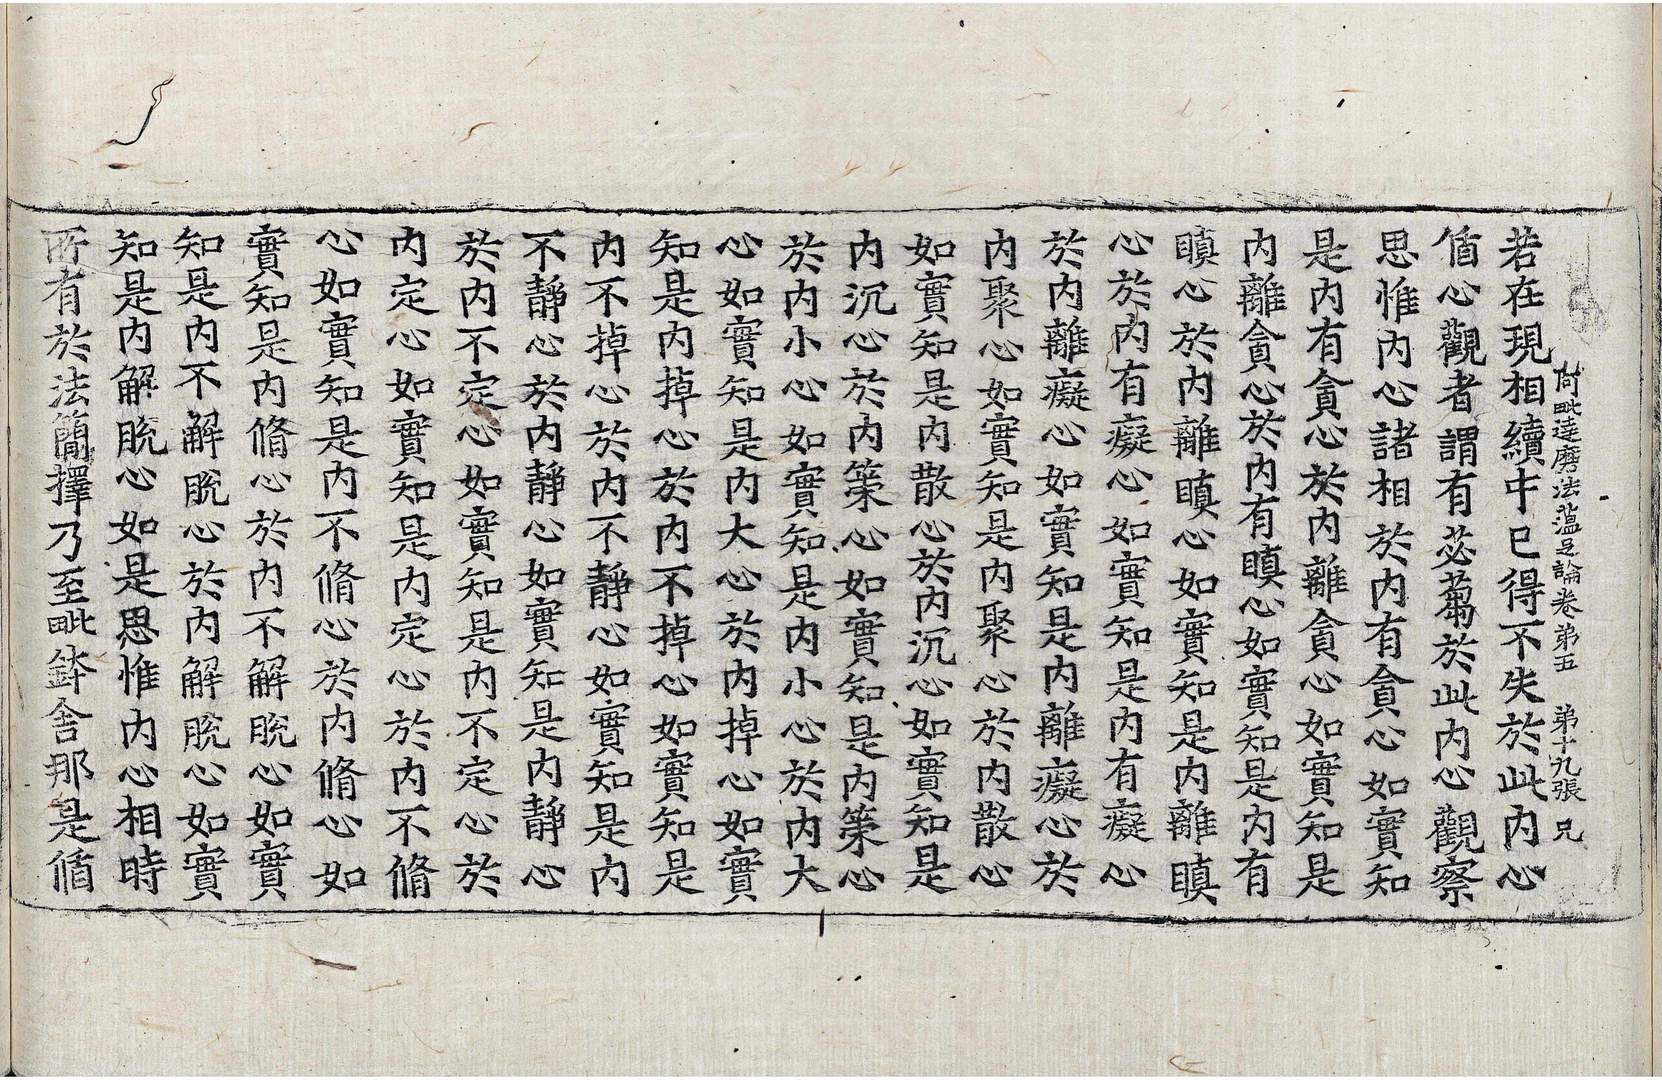 阿毗達磨法蘊足論卷第五 第十九張 兄
若在現相續中已得不失於此內心
循心觀者謂有苾蒭於此內心觀察
思惟內心諸相於內有貪心如實知
是內有貪心於內離貪心如實知是
內離貪心於內有瞋心如實知是內有
瞋心於內離瞋心如實知是內離瞋
心於內有癡心如實知是內有癡心
於內離癡心如實知是內離癡心於
內聚心如實知是內聚心於內散心
如實知是內散心於內沉心如實知是
內沉心於內策心如實知是內策心
於內小心如實知是內小心於內大
心如實知是內大心於內掉心如實
知是內掉心於內不掉心如實知是
內不掉心於內不靜心如實知是內
不靜心於內靜心如實知是內靜心
於內不定心如實知是內不定心於
內定心如實知是內定心於內不脩
心如實知是內不脩心於內脩心如
實知是內脩心於內不解脫心如實
知是內不解脫心於內解脫心如實
知是內解脫心如是思惟內心相時
所有於法簡擇乃至毗鉢舍那是循